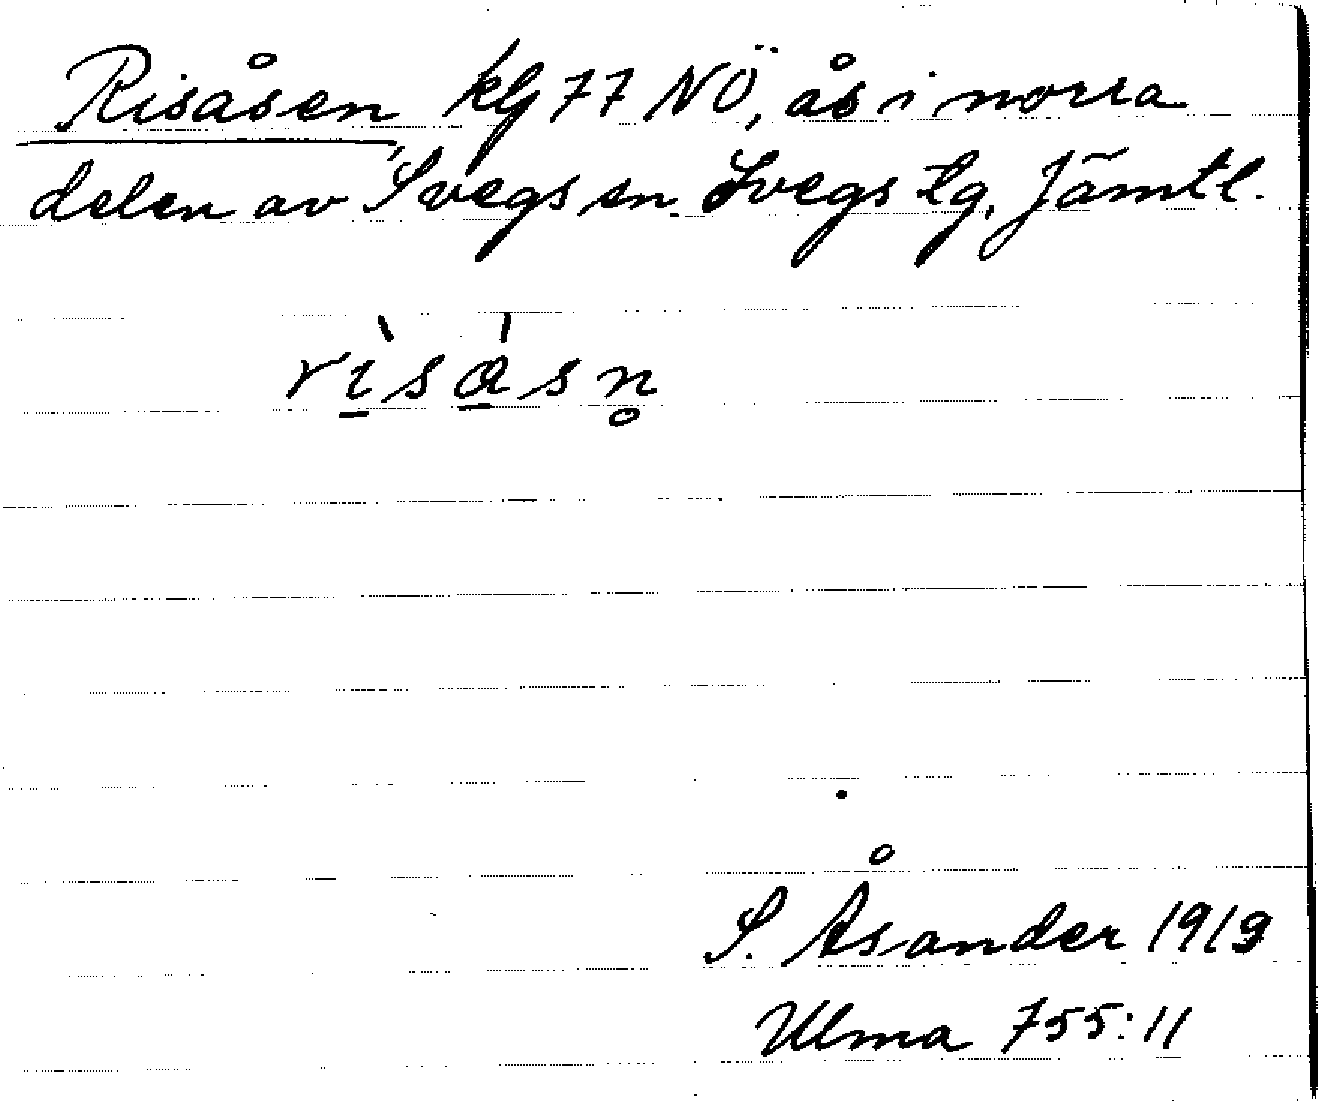 Risåsen, kbj 77 NÖ, ås i norra
delen av Svegs sn. Svegs tg. Jämtl.
rìsåsn̥
S. Åsander 1919
Ulma 755:11